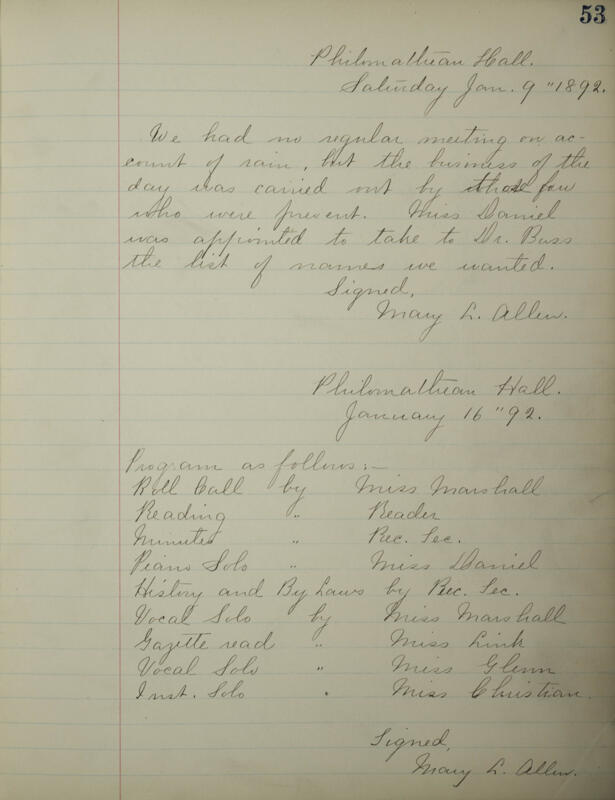 53
Philomathean Hall.
Saturday Jan. 9" 1892.
We had no regular meeting on ac-
count of rain, but the business of the
day was carried out by those few
who were present. Miss Daniel
was appointed to take to Dr. Buss
the list of names we wanted.
Signed,
Mary L. Allen.
Philomathean Hall.
January 16" 92.
Program as follows:—
Roll Call by Miss Marshall
Reading " Reader
Minutes " Rec. Sec.
Piano Solo " Miss Daniel
History and By Laws by Rec. Sec.
Vocal Solo by Miss Marshall
Gazette read " Miss Link
Vocal Solo " Miss Glenn
Inst. Solo " Miss Christian
Signed,
Mary L. Allen.